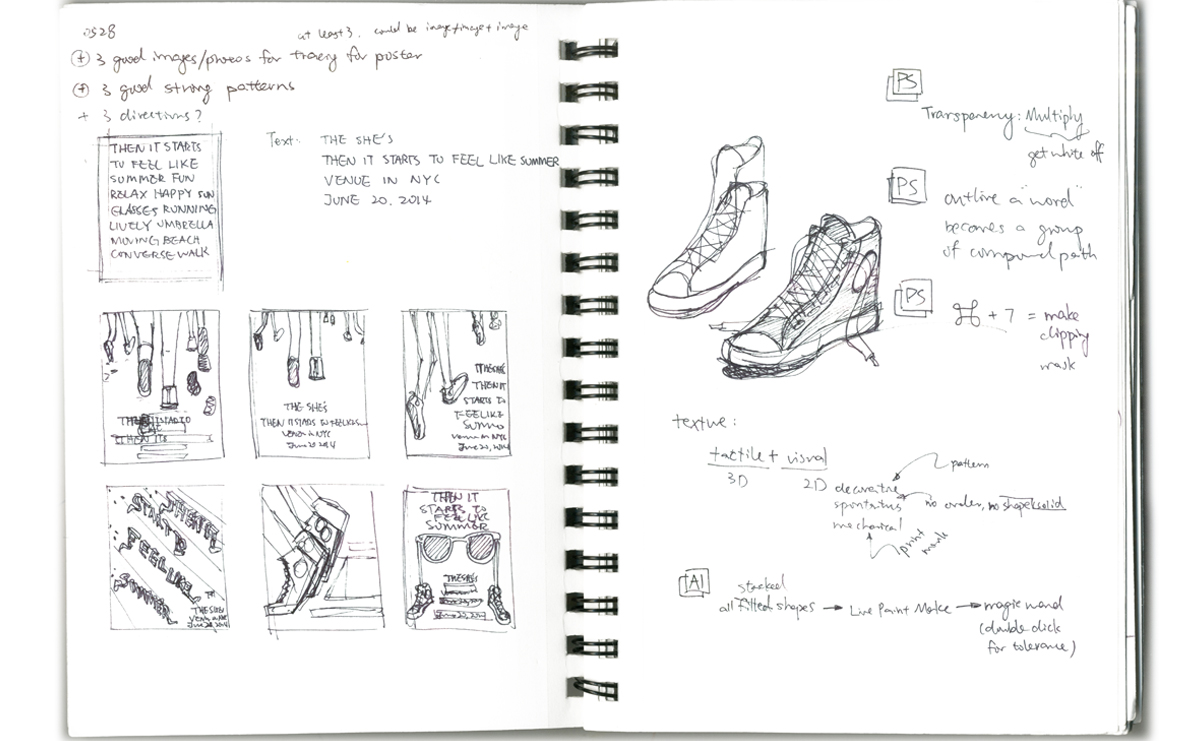 0528
at least 3. could be image+image+image
+ 3 good images/photos for tracing for poster
+ 3 good strong patterns
+ 3 directions?
THEN IT STARTS
TO FEEL LIKE
SUMMER FUN
RELAX HAPPY SUN
GLASSES RUNNING
LIVELY UMBRELLA
MOVING BEACH
CONVERSE WALK
Text: THE SHE'S
THEN IT STARTS TO FEEL LIKE SUMMER
VENUE IN NYC
JUNE 20. 2014
THEN IT
THE SHE'S
THEN IT STARTS TO FEEL LIKE
VENUE IN NYC
June 20 2014
THE SHE'S
THEN IT
STARTS TO
FEEL LIKE
SUMMO
Venue in NYC
June 20, 2014
THEN IT
START TO
FEEL LIKE
SUMMER
THE SHE'S
VENUE IN NYC
June 20, 2014
THEN IT
STARTS TO
FEEL LIKE
SUMMER
THE SHE'S
June 20, 2014
PS
Transparency: Multiply
get white off
PS
outline a "word"
becomes a group
of compound path
PS
⌘ + 7 = make
clipping
mask
texture:
tactile + visual
3D 2D
decorative
pattern
no order, no shape & solid
mechanical
print
mark
AI
stacked
all filled shapes → Live Paint Make → magic wand
(double click
for tolerance)